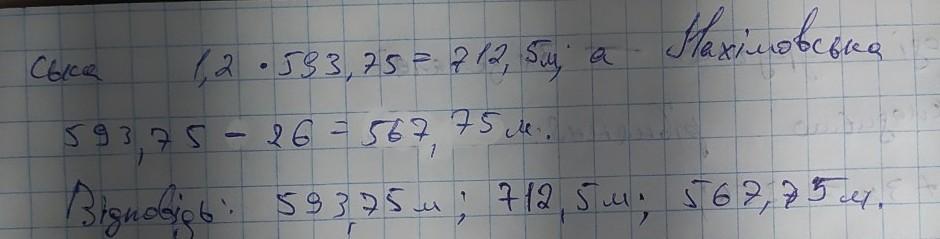 ська 1,2 · 593,75 = 712,5м, а Нахімовська
593,75 - 26 = 567,75 м.
Відповідь: 593,75м; 712,5м; 567,75м.